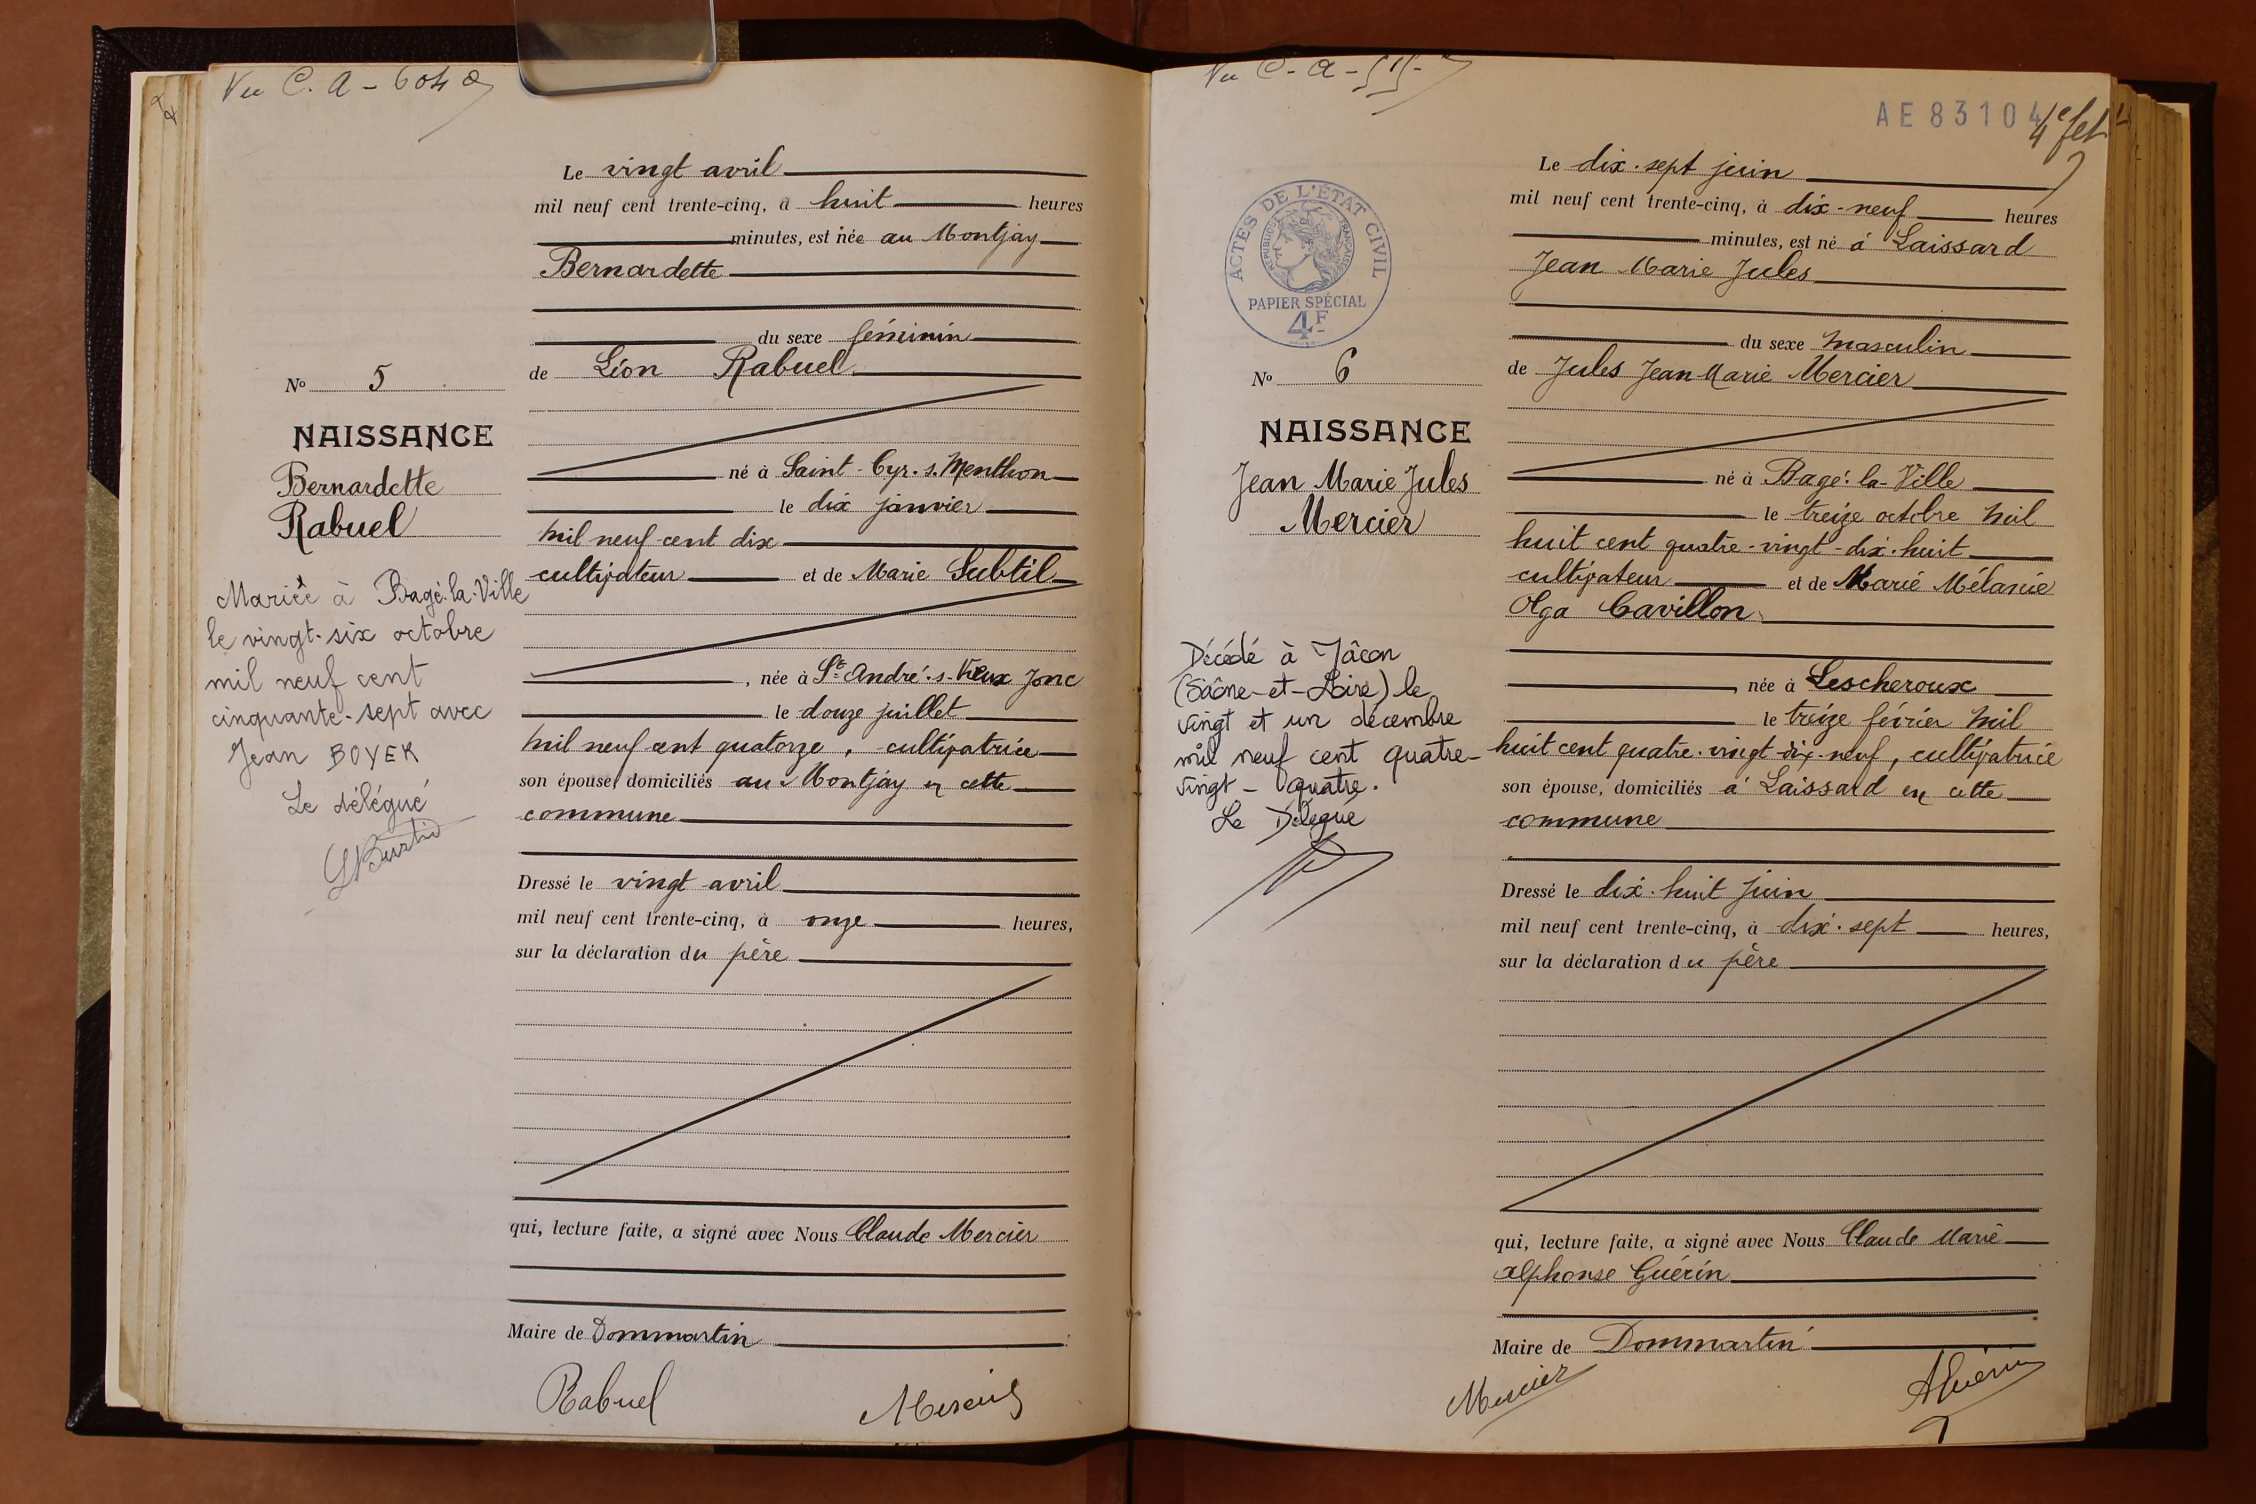 Vu C. A - 604
Le vingt avril
mil neuf cent trente-cinq, à huit heures
minutes, est née au Montjay
Bernardette
du sexe féminin
de Léon Rabuel
No 5
NAISSANCE
Bernardette
Rabuel
né à Saint-Cyr-s.Menthon
le dix janvier
mil neuf cent dix
cultivateur et de Marie Subtil
Mariée à Bagé-la-Ville
le vingt-six octobre
mil neuf cent
cinquante-sept avec
Jean BOYER
Le délégué
, née à St-André-s-Vieux Jonc
le douze juillet
mil neuf cent quatorze, cultivatrice
son épouse, domiciliés au Montjay en cette
commune
Dressé le vingt avril
mil neuf cent trente-cinq, à onze heures,
sur la déclaration du père
qui, lecture faite, a signé avec Nous Claude Mercier
Maire de Dommartin
Rabuel Mercier
Vu C - A -
AE 83104
4e fet
Le dix-sept juin
mil neuf cent trente-cinq, à dix-neuf heures
minutes, est né à Laissard
Jean Marie Jules
du sexe masculin
de Jules Jean Marie Mercier
ACTES DE L'ÉTAT CIVIL
RÉPUBLIQUE FRANÇAISE
PAPIER SPÉCIAL
4F
No 6
NAISSANCE
Jean Marie Jules
Mercier
né à Bagé-la-Ville
le treize octobre mil
huit cent quatre-vingt-dix-huit
cultivateur et de Marie Mélanie
Olga Cavillon
Décédé à Mâcon
(Saône-et-Loire) le
vingt et un décembre
mil neuf cent quatre-
vingt-quatre.
Le Délégué
, née à Lescheroux
le treize février mil
huit cent quatre-vingt-dix-neuf, cultivatrice
son épouse, domiciliés à Laissard en cette
commune
Dressé le dix-huit juin
mil neuf cent trente-cinq, à dix-sept heures,
sur la déclaration du père
qui, lecture faite, a signé avec Nous Claude Marie
Alphonse Guérin
Maire de Dommartin
Mercier AGuérin